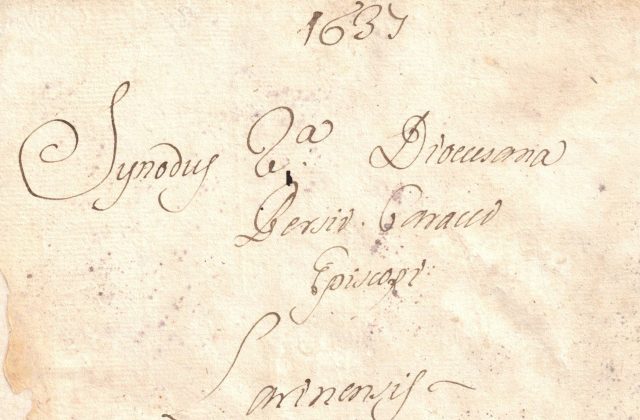 1637
Synodus 2.ª Diocesana
Persii Caracci
Episcopi
Larinensis